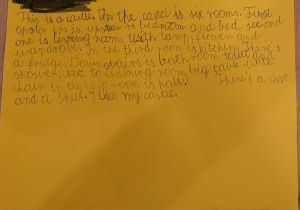 This is a castle. In the castel is six rooms. First
upsta is is upstairs beadroom and bed second
one is living room. With lamp, flower and
wardrobe. In the third room is kitchen. There's
a fridge. Downstairs is bathroom toilet and
shower. Next to is dining room big table with
chair in the last room is hall. There's a chest
and a shelf. I like my castle.